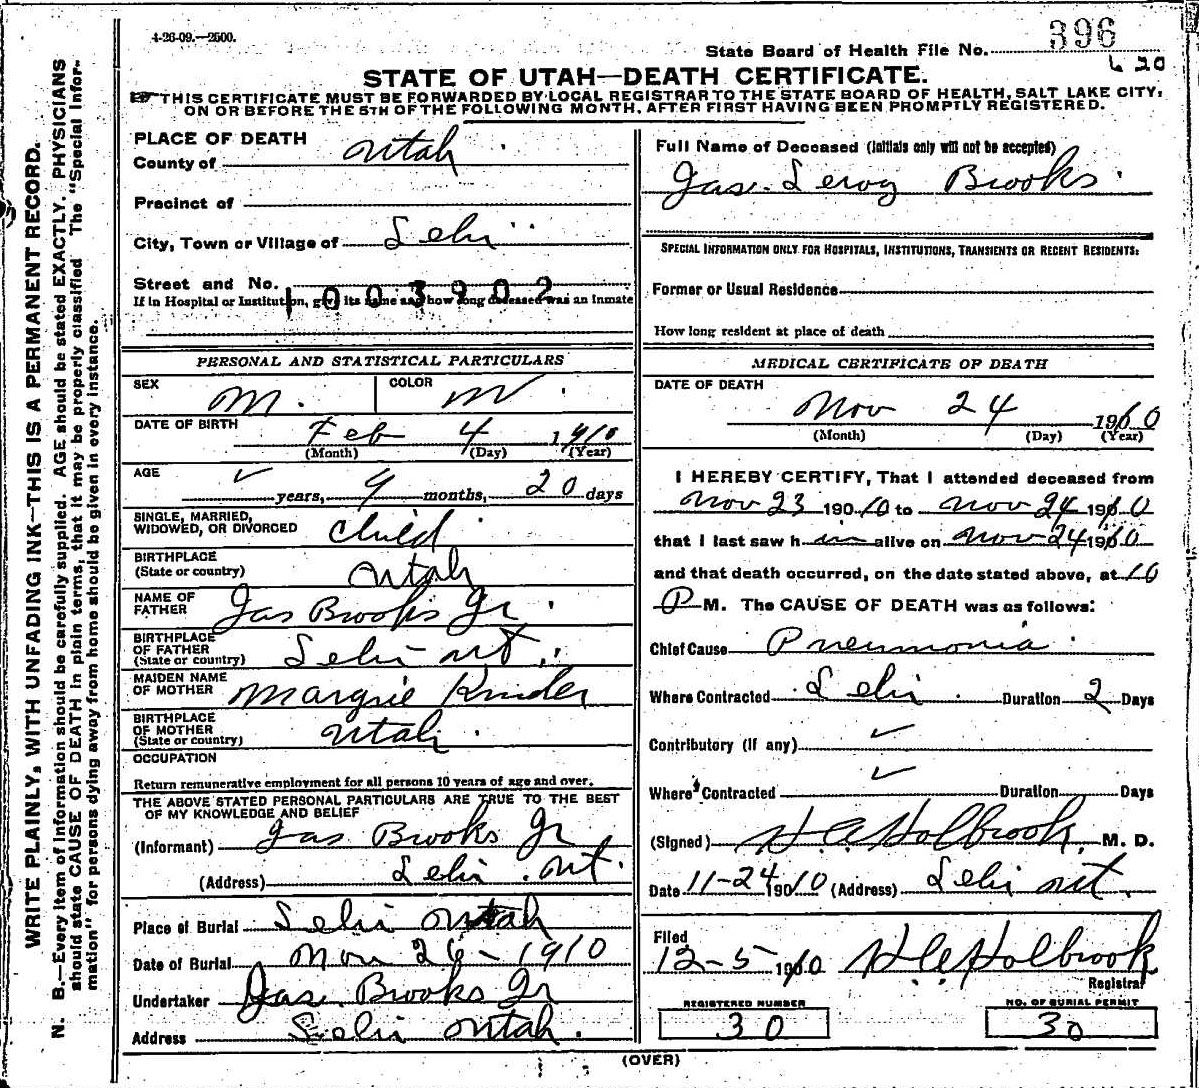 4-26-09.—2500.
State Board of Health File No. 396
620
STATE OF UTAH—DEATH CERTIFICATE.
THIS CERTIFICATE MUST BE FORWARDED BY LOCAL REGISTRAR TO THE STATE BOARD OF HEALTH, SALT LAKE CITY,
ON OR BEFORE THE 5TH OF THE FOLLOWING MONTH, AFTER FIRST HAVING BEEN PROMPTLY REGISTERED.
WRITE PLAINLY, WITH UNFADING INK—THIS IS A PERMANENT RECORD.
N. B.—Every item of information should be carefully supplied. AGE should be stated EXACTLY. PHYSICIANS
should state CAUSE OF DEATH in plain terms, that it may be properly classified The "Special Infor-
mation" for persons dying away from home should be given in every instance.
PLACE OF DEATH
County of Utah
Precinct of
City, Town or Village of Lehi
Street and No.
1003902
If in Hospital or Institution, give its name and how long deceased was an Inmate
PERSONAL AND STATISTICAL PARTICULARS
SEX M. COLOR W
DATE OF BIRTH Feb 4 1910
(Month) (Day) (Year)
AGE
years, 9 months, 20 days
SINGLE, MARRIED,
WIDOWED, OR DIVORCED Child
BIRTHPLACE
(State or country) Utah
NAME OF
FATHER Jas Brooks Jr
BIRTHPLACE
OF FATHER
(State or country) Lehi Ut
MAIDEN NAME
OF MOTHER Margie Kinder
BIRTHPLACE
OF MOTHER
(State or country) Utah
OCCUPATION
Return remunerative employment for all persons 10 years of age and over.
THE ABOVE STATED PERSONAL PARTICULARS ARE TRUE TO THE BEST
OF MY KNOWLEDGE AND BELIEF
(Informant) Jas Brooks Jr
(Address) Lehi Ut.
Place of Burial Lehi Utah
Date of Burial Nov 26-1910
Undertaker Jas. Brooks Jr
Address Lehi Utah.
Full Name of Deceased (Initials only will not be accepted)
Jas. Leroy Brooks
SPECIAL INFORMATION ONLY FOR HOSPITALS, INSTITUTIONS, TRANSIENTS OR RECENT RESIDENTS:
Former or Usual Residence
How long resident at place of death
MEDICAL CERTIFICATE OF DEATH
DATE OF DEATH
Nov 24 1910
(Month) (Day) (Year)
I HEREBY CERTIFY, That I attended deceased from
Nov 23 190 10 to Nov 24 1910
that I last saw him alive on Nov 24 1910
and that death occurred, on the date stated above, at 10
P M. The CAUSE OF DEATH was as follows:
Chief Cause Pneumonia
Where Contracted Lehi Duration 2 Days
Contributory (if any)
Where Contracted Duration Days
(Signed) H A Holbrook, M. D.
Date 11-24 1910 (Address) Lehi Ut.
Filed
12-5 1910 H A Holbrook
Registrar
REGISTERED NUMBER
30
NO. OF BURIAL PERMIT
30
(OVER)